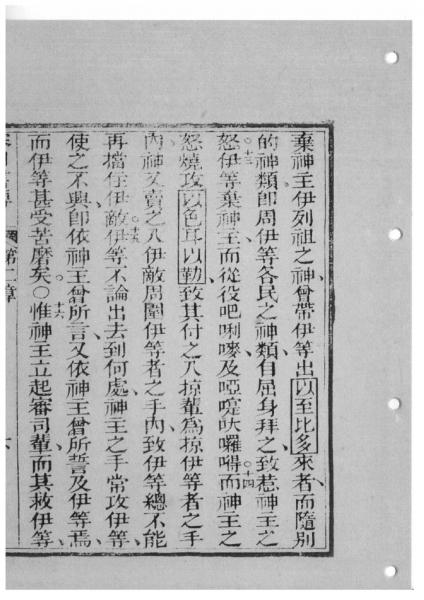 棄神主伊列祖之神曾帶伊等出以至比多來者而隨別
的神類即周伊等各民之神類自屈身拜之致惹神主之
怒伊等棄神主而從役吧唎嘜及啞𠺕呔囉嘚而神主之
怒燒攻以色耳以勒致其付之入掠輩為掠伊等者之手
內神又賣之入伊敵周圍伊等者之手內致伊等總不能
再擋住伊敵伊等不論出去到何處神主之手常攻伊等
使之不興即依神主曾所言又依神主曾所誓及伊等焉
而伊等甚受苦磨矣○惟神主立起審司輩而其救伊等
第二章